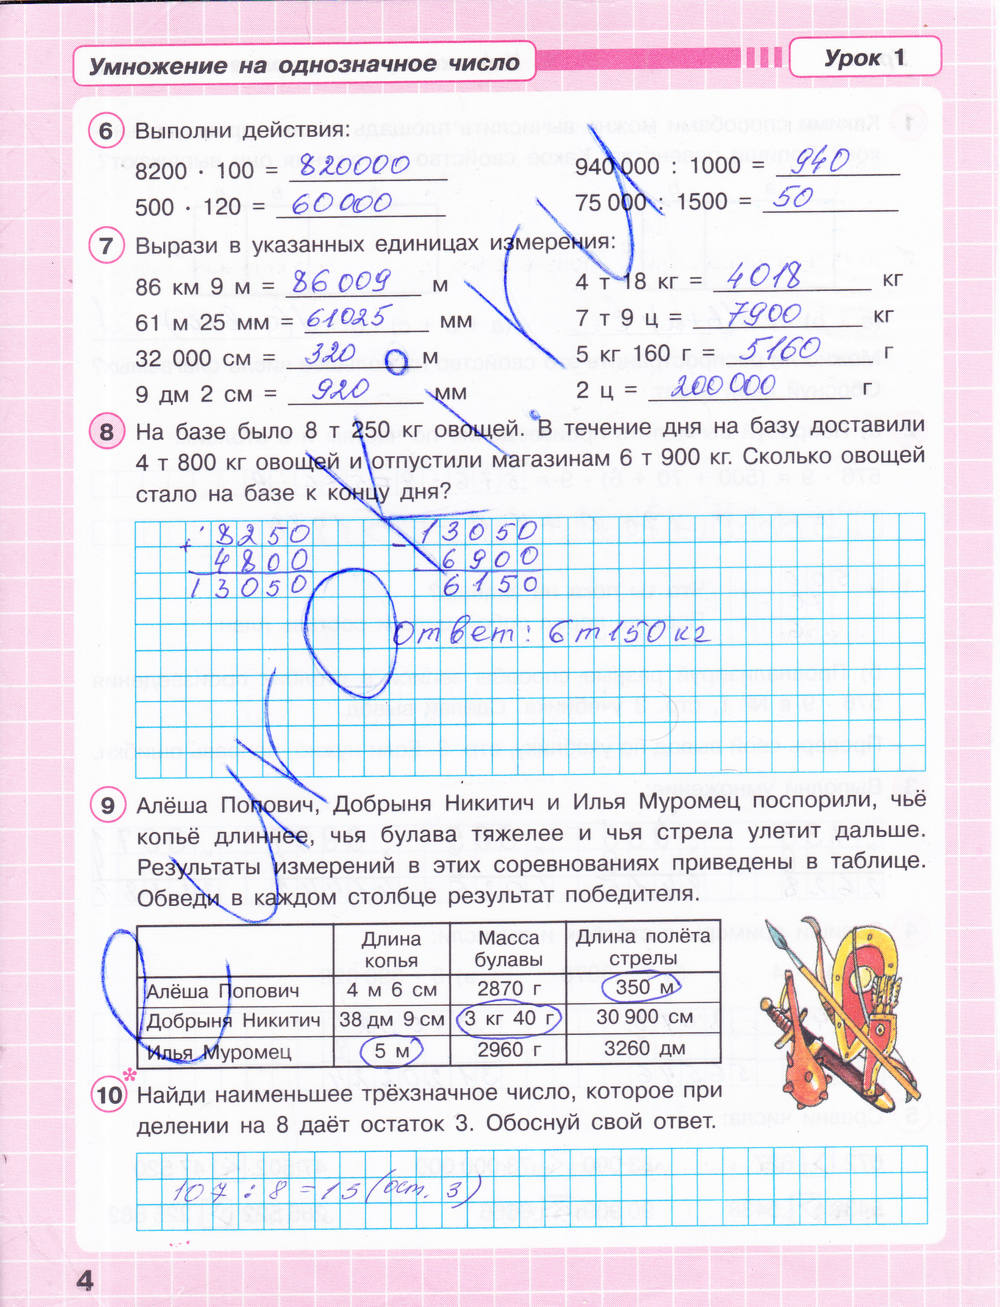 Умножение на однозначное число
Урок 1
6 Выполни действия:
8200 · 100 = 820000
940 000 : 1000 = 940
500 · 120 = 60 000
75 000 : 1500 = 50
7 Вырази в указанных единицах измерения:
86 км 9 м = 86 009 м
4 т 18 кг = 4018 кг
61 м 25 мм = 61025 мм
7 т 9 ц = 7900 кг
32 000 см = 320 м
5 кг 160 г = 5160 г
9 дм 2 см = 920 мм
2 ц = 200 000 г
8 На базе было 8 т 250 кг овощей. В течение дня на базу доставили
4 т 800 кг овощей и отпустили магазинам 6 т 900 кг. Сколько овощей
стало на базе к концу дня?
+ 8250
4800
13050
- 13050
6900
6150
Ответ: 6 т 150 кг
9 Алёша Попович, Добрыня Никитич и Илья Муромец поспорили, чьё
копьё длиннее, чья булава тяжелее и чья стрела улетит дальше.
Результаты измерений в этих соревнованиях приведены в таблице.
Обведи в каждом столбце результат победителя.
Длина копья Масса булавы Длина полёта стрелы
Алёша Попович 4 м 6 см 2870 г 350 м
Добрыня Никитич 38 дм 9 см 3 кг 40 г 30 900 см
Илья Муромец 5 м 2960 г 3260 дм
10* Найди наименьшее трёхзначное число, которое при
делении на 8 даёт остаток 3. Обоснуй свой ответ.
107 : 8 = 13 (ост. 3)
4